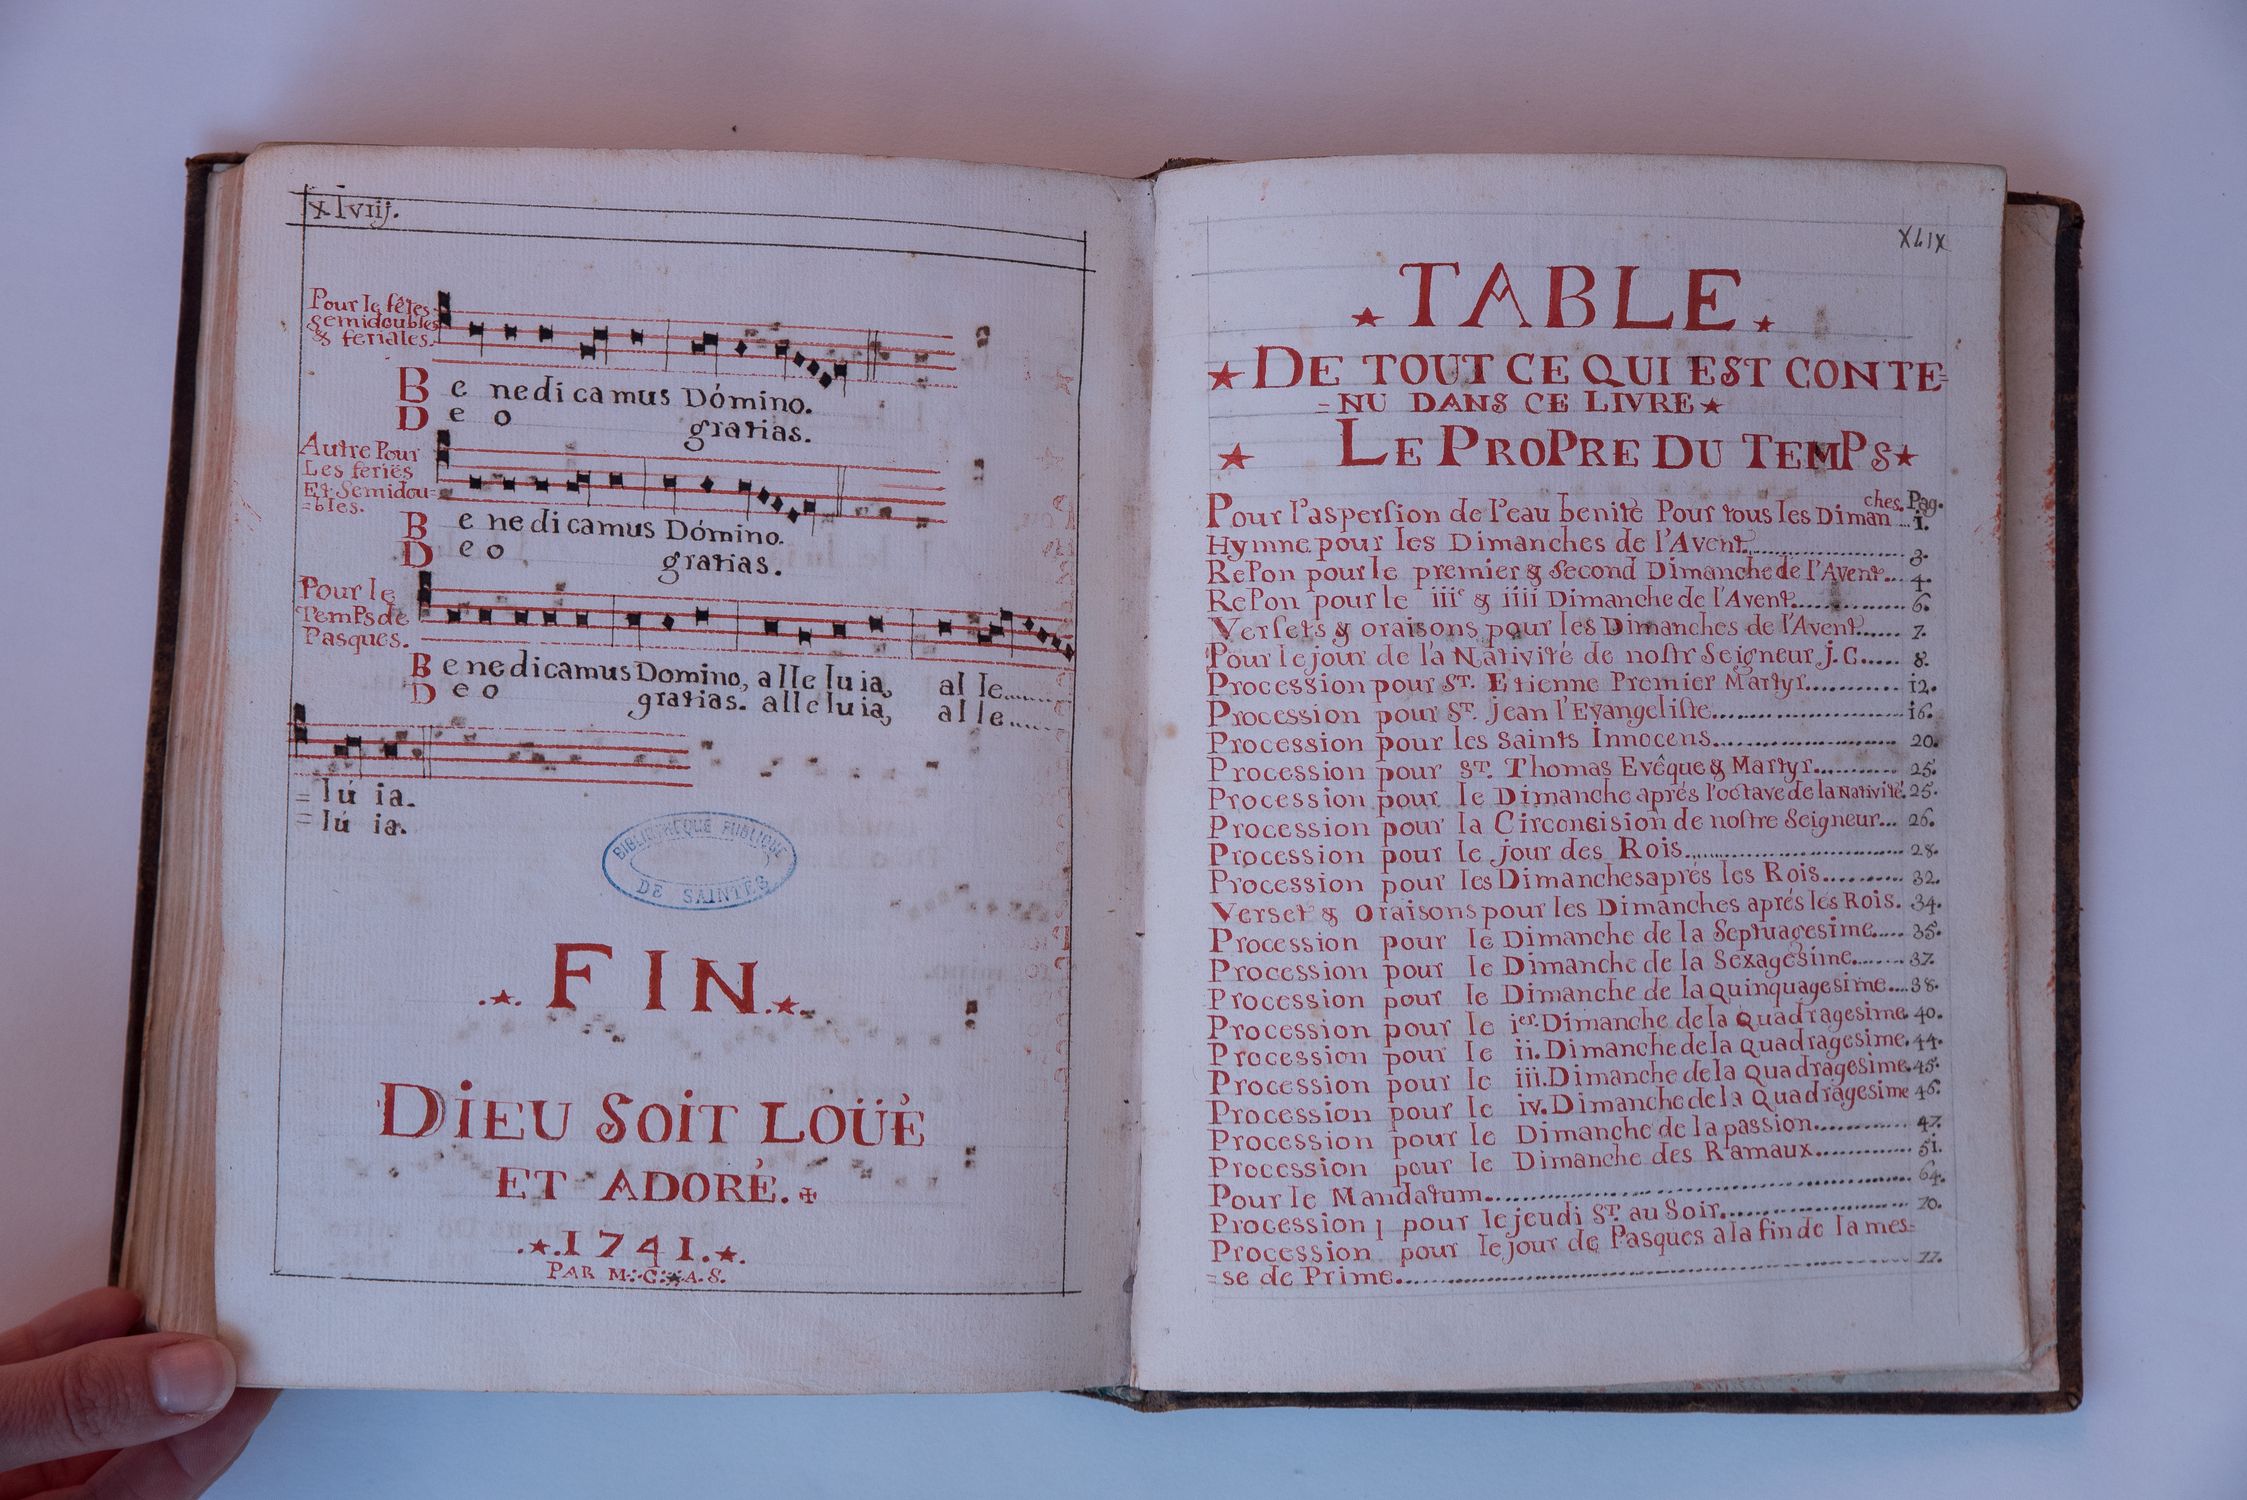 xlviij.
Pour le fêtes
semidoubles
& feriales.
Benedicamus Dómino.
Deo gratias.
Autre Pour
Les feriës
Et Semidou=
=bles.
Benedicamus Dómino.
Deo gratias.
Pour le
Temps de
Pasques.
Benedicamus Domino, alleluia, alle......
Deo gratias. alleluia, alle.....
=lú ia.
=lú ia.
BIBLIOTHEQUE PUBLIQUE
DE SAINTES
.★. FIN.★.
DIEU SOIT LOÜÉ
ET ADORÉ.✠
.★.1741.★.
PAR M.·.C.·.★.A.S.
XLIX
★TABLE.★
★DE TOUT CE QUI EST CONTE=
=NU DANS CE LIVRE★
★ LE PROPRE DU TEMPS★
ches. Pag.
Pour l'aspersion de l'eau benite Pour tous les Diman... i.
Hymne pour les Dimanches de l'Avent.................. 3.
Repon pour le premier & second Dimanche de l'Avent... 4.
Repon pour le iiie & iiii Dimanche de l'Avent............ 6.
Versets & oraisons pour les Dimanches de l'Avent...... 7.
Pour le jour de la Nativité de nostr Seigneur J. C..... 8.
Procession pour ST. Etienne Premier Martyr........... i2.
Procession pour ST. Jean l'Evangeliste.................. i6.
Procession pour les saints Innocens.................. 20.
Procession pour ST. Thomas Evêque & Martyr.......... 25.
Procession pour le Dimanche aprés l'octave de la Nativité. 25.
Procession pour la Circoncision de nostre Seigneur... 26.
Procession pour le jour des Rois..................... 28.
Procession pour les Dimanches aprés les Rois......... 32.
Verset & Oraisons pour les Dimanches aprés les Rois. 34.
Procession pour le Dimanche de la Septuagesime..... 35.
Procession pour le Dimanche de la Sexagesime....... 37.
Procession pour le Dimanche de la Quinquagesime.... 38.
Procession pour le ier. Dimanche de la Quadragesime. 40.
Procession pour le ii. Dimanche de la Quadragesime. 44.
Procession pour le iii. Dimanche de la Quadragesime. 45.
Procession pour le iv. Dimanche de la Quadragesime 46.
Procession pour le Dimanche de la passion........... 47.
Procession pour le Dimanche des Ramaux............ 5i.
Pour le Mandatum.......................................... 64.
Procession pour le jeudi ST. au Soir..................... 70.
Procession pour le jour de Pasques a la fin de la mes=
=se de Prime................................................ 77.